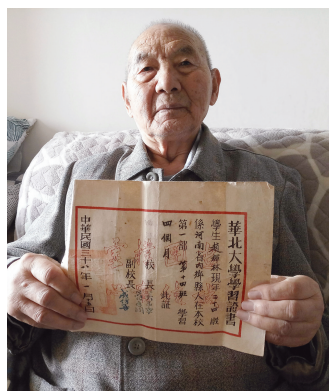 華北大學學習證書
學生趙林現年二十四歲
係河南省內鄉縣人在本校
第一部第十四班學習
四個月 此證
校長
副校長
中華民國三十八年 月 日